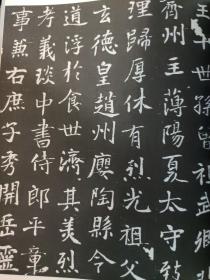 王十世孫曾祖武卿
齊州主薄陽夏太守
理歸厚休有烈光祖父
玄德皇趙州廮陶縣令
道浮於食世濟其美烈
考義琰中書侍郎平章
事兼右庶子秀開岳靈